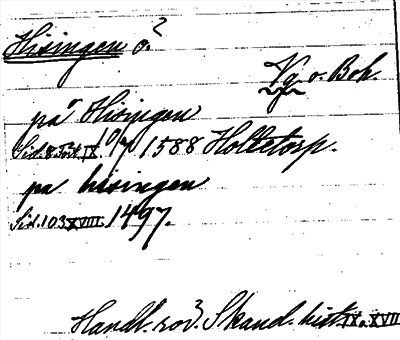 Hisingen ö.
Vg o. Boh.
på Hisingen
10/7 1588 Holletorp.
på hisingen
Sid. 103 XVIII. 1497.
Handl. rör. Skand. hist. IX o. XVIII